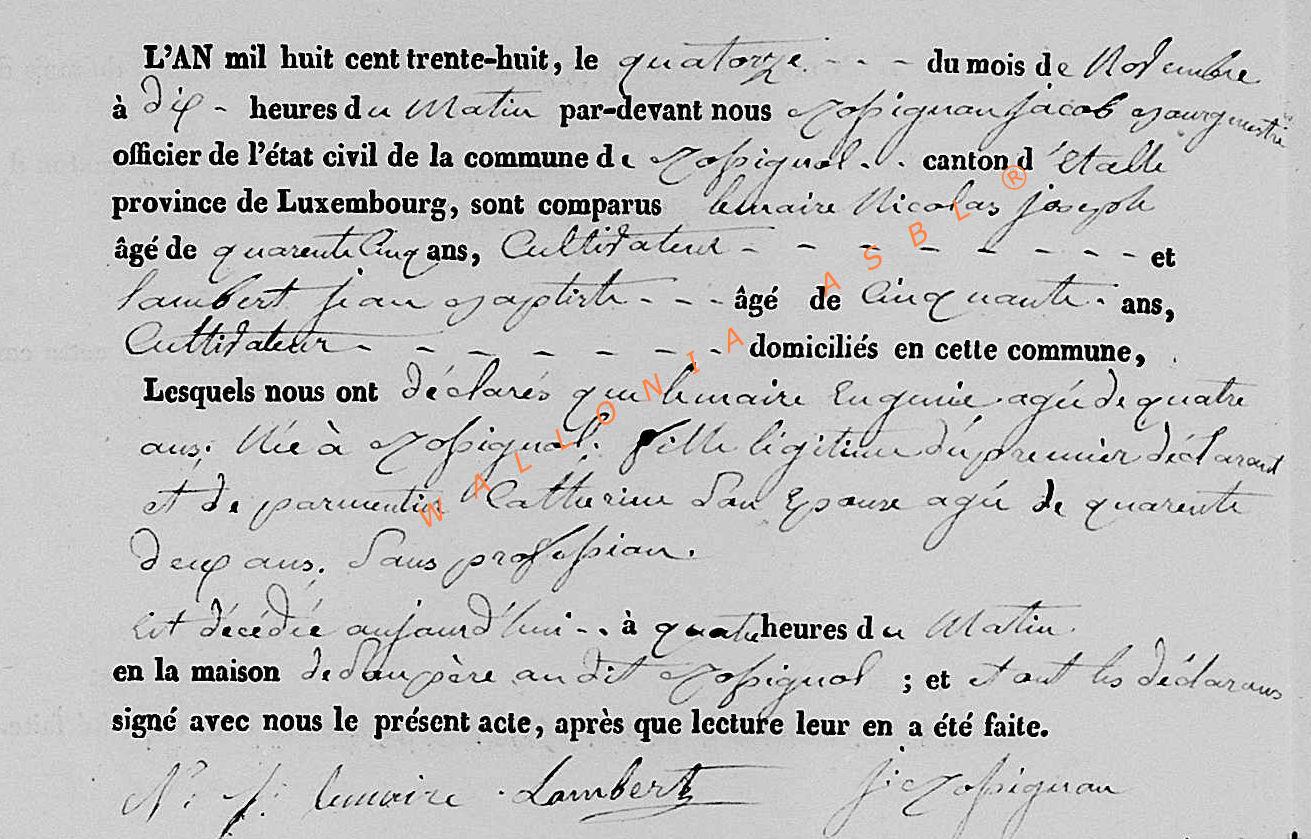 L'AN mil huit cent trente-huit, le quatorze - - - du mois de Novembre
à dix - heures du Matin par-devant nous Rossignon Jacob Bourgmestre
officier de l'état civil de la commune de Rossignol - . canton d'Etalle
province de Luxembourg, sont comparus lemaire Nicolas Joseph
âgé de quarente Cinq ans, Cultivateur - - - - - - - - et
lambert jean Baptiste - - - âgé de Cinquante - ans,
Cultivateur - - - - - - - domiciliés en cette commune,
Lesquels nous ont déclarés que lemaire Eugenie agée de quatre
ans, Née à Rossignol. fille légitime du premier déclarant
et de parmentier Catherine Son Epouse agée de quarente
deux ans. Sans profession.
Est décédée aujourd'hui - . à quatre heures du Matin
en la maison de Son père au dit Rossignol ; et et ont les déclarans
signé avec nous le présent acte, après que lecture leur en a été faite.
N. J. lemaire Lambert J. Rossignon
WALLONIA ASBL ®